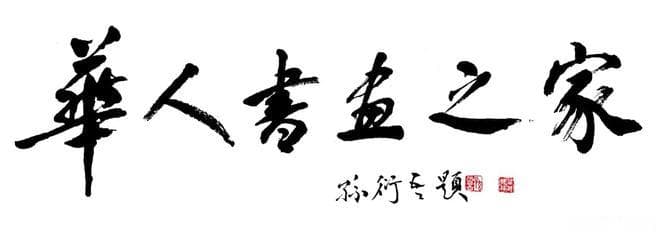 華人書畫之家
孫衍題